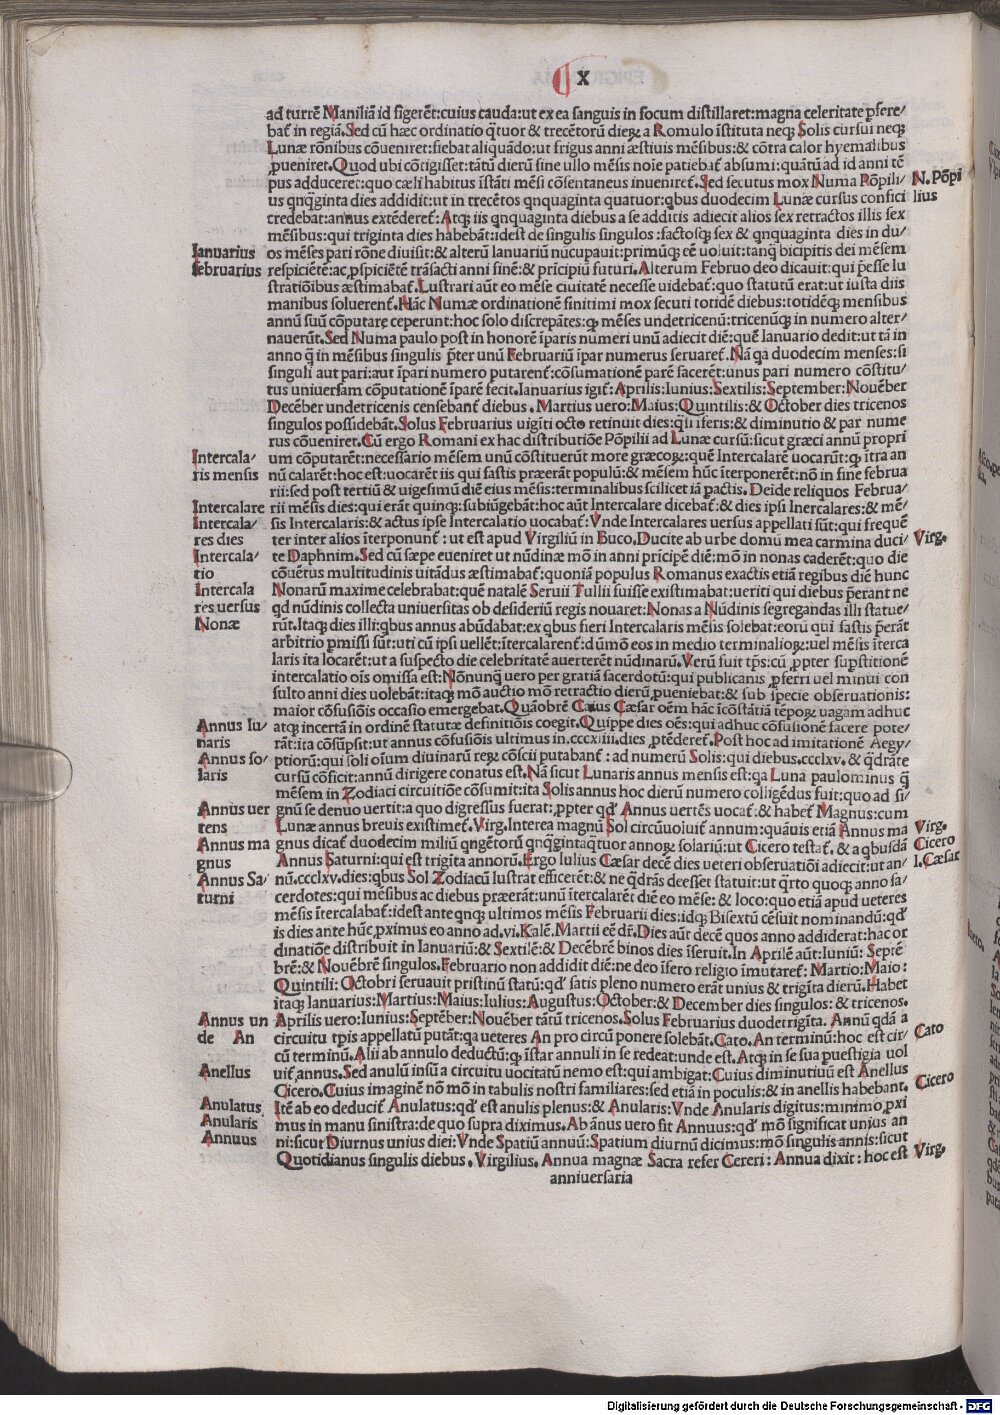 X
ad turrē Maniliā id figerēt: cuius cauda: ut ex ea sanguis in focum distillaret: magna celeritate ꝓfere/
bat̄ in regiā. Sed cū hæc ordinatio q̄tuor & trecētorū dieꝝ a Romulo īstituta neqꝫ Solis cursui neqꝫ
Lunæ rōnibus cōueniret: fiebat aliquādo: ut frigus anni æstiuis mēsibus: & cōtra calor hyemalibus
ꝓueniret. Quod ubi cōtigisset: tātū dierū sine ullo mēsis noīe patiebat̄ absumi: quātū ad id anni tē
pus adduceret: quo cæli habitus īstāti mēsi cōsentaneus inueniret̄. Sed secutus mox Numa Pōpili/
us qnqginta dies addidit: ut in trecētos qnquaginta quatuor: qbus duodecim Lunæ cursus confici
credebat: annus extēderet̄. Atqꝫ iis qnquaginta diebus a se additis adiecit alios sex retractos illis sex
mēsibus: qui triginta dies habebāt: idest de singulis singulos: factosqꝫ sex & qnquaginta dies in du/
os mēses pari rōne diuisit: & alterū Ianuariū nūcupauit: primūqꝫ eē uoluit: tanq̄ bicipitis dei mēsem
respiciētē: ac ꝓspiciētē trāsacti anni finē: & prīcipiū futuri. Alterum Februo deo dicauit: qui p̄esse lu
strationībus æstimabat̄. Lustrari aūt eo mēse ciuitatē necesse uidebat̄: quo statutū erat: ut iusta diis
manibus soluerent̄. Hāc Numæ ordinationē finitimi mox secuti totidē diebus: totidēqꝫ mensibus
annū suū cōputare ceperunt: hoc solo discrepātes: ꝙ mēses undetricenū: tricenūqꝫ in numero alter/
nauerūt. Sed Numa paulo post in honorē īparis numeri unū adiecit diē: quē Ianuario dedit: ut tā in
anno q̄ in mēsibus singulis p̄ter unū Februariū īpar numerus seruaret̄. Nā qa duodecim menses: si
singuli aut pari: aut īpari numero putarent̄: cōsumationē parē facerēt: unus pari numero cōstitu/
tus uniuersam cōputationē īparē fecit. Ianuarius igit̄: Aprilis: Iunius: Sextilis: September: Nouēber
Decēber undetricenis censebant̄ diebus. Martius uero: Maius: Quintilis: & October dies tricenos
singulos possidebāt. Solus Februarius uigīti octo retinuit dies: q̄si īferis: & diminutio & par nume
rus cōueniret. Cū ergo Romani ex hac distributiōe Pōpilii ad Lunæ cursū: sicut græci annū propri
um cōputarēt: necessario mēsem unū cōstituerūt more græcoꝝ: quē Intercalarē uocarūt: ꝙ ītra an
nū calarēt: hoc est: uocarēt iis qui fastis præerāt populū: & mēsem hūc īterponerēt: nō in fine februa
rii: sed post tertiū & uigesimū diē eius mēsis: terminalibus scilicet iā pactis. Deide reliquos Februa/
rii mēsis dies: qui erāt quinqꝫ: subiūgebāt: hoc aūt Intercalare dicebat̄: & dies ipsi Inercalares: & mē/
sis Intercalaris: & actus ipse Intercalatio uocabat̄. Vnde Intercalares uersus appellati sūt: qui frequē
ter inter alios īterponunt̄: ut est apud Virgiliū in Buco. Ducite ab urbe domū mea carmina duci/
te Daphnim. Sed cū sæpe eueniret ut nūdinæ mō in anni prīcipē diē: mō in nonas caderēt: quo die
cōuētus multitudinis uitādus æstimabat̄: quoniā populus Romanus exactis etiā regibus diē hunc
Nonarū maxime celebrabat: quē natalē Seruii Tullii fuisse existimabat: ueriti qui diebus p̄erant ne
qd nūdinis collecta uniuersitas ob desideriū regis nouaret: Nonas a Nūdinis segregandas illi statue/
rūt. Itaqꝫ dies illi: qbus annus abūdabat: ex qbus fieri Intercalaris mēsis solebat: eorū qui fastis p̄erāt
arbitrio ꝓmissi sūt: uti cū ipsi uellēt: ītercalarent̄: dūmō eos in medio terminalioꝝ: uel mēsis īterca
laris ita locarēt: ut a suspecto die celebritatē auerterēt nūdinarū. Verū fuit tp̄s: cū ꝓpter supstitionē
intercalatio oīs omissa est: Nōnunq̄ uero per gratiā sacerdotū: qui publicanis ꝓferri uel minui con
sulto anni dies uolebāt: itaqꝫ mō auctio mō retractio dierū ꝓueniebat: & sub specie obseruationis:
maior cōfusiōis occasio emergebat. Quāobrē Caius Cæsar oēm hāc īcōstātiā tēpoꝝ uagam adhuc
atqꝫ incertā in ordinē statutæ definitiōis coegit. Quippe dies oēs: qui adhuc cōfusionē facere pote/
rāt: ita cōsūpsit: ut annus cōfusiōis ultimus in. cccxliii. dies ꝓtēderet̄. Post hoc ad imitationē Aegy/
ptiorū: qui soli oīum diuinarū reꝝ cōscii putabant̄: ad numerū Solis: qui diebus. ccclxv. & q̄drāte
cursū cōficit: annū dirigere conatus est. Nā sicut Lunaris annus mensis est: qa Luna paulominus q̄
mēsem in Zodiaci circuitiōe cōsumit: ita Solis annus hoc dierū numero colligēdus fuit: quo ad si/
gnū se denuo uertit: a quo digressus fuerat: ꝓpter qd Annus uertēs uocat̄: & habet̄ Magnus: cum
Lunæ annus breuis existimet̄. Virg. Interea magnū Sol circūuoluit̄ annum: quāuis etiā Annus ma
gnus dicat̄ duodecim miliū qngētorū qnqgintaqtuor annoꝝ solariū: ut Cicero testat̄. & a qbusdā
Annus Saturni: qui est trigīta annorū. Ergo Iulius Cæsar decē dies ueteri obseruatiōi adiecit: ut an/
nū. ccclxv. dies: qbus Sol Zodiacū lustrat efficerēt: & ne q̄drās deesset statuit: ut q̄rto quoqꝫ anno sa/
cerdotes: qui mēsibus ac diebus præerāt: unū ītercalarēt diē eo mēse: & loco: quo etiā apud ueteres
mēsis ītercalabat̄: idest ante qnqꝫ ultimos mēsis Februarii dies: idqꝫ Bisextū cēsuit nominandū: qd
is dies ante hūc ꝓximus eo anno ad. vi. Kalē. Martii eē dr̄. Dies aūt decē quos anno addiderat: hac or
dinatiōe distribuit in Ianuariū: & Sextilē: & Decēbrē binos dies īseruit. In Aprilē aūt: Iuniū: Septē
brē: & Nouēbrē singulos. Februario non addidit diē: ne deo īfero religio īmutaret̄: Martio: Maio:
Quintili: Octobri seruauit pristinū statū: qd satis pleno numero erāt unius & trigīta dierū. Habet
itaqꝫ Ianuarius: Martius: Maius: Iulius: Augustus: October: & December dies singulos: & tricenos.
Aprilis uero: Iunius: Septēber: Nouēber tātū tricenos. Solus Februarius duodetrigīta. Annū qdā a
circuitu tp̄is appellatū putāt: qa ueteres An pro circū ponere solebāt. Cato. An terminū: hoc est cir/
cū terminū. Alii ab annulo deductū: ꝙ īstar annuli in se redeat: unde est. Atqꝫ in se sua puestigia uol
uit̄ annus. Sed anulū insū a circuitu uocitatū nemo est: qui ambigat: Cuius diminutiuū est Anellus
Cicero. Cuius imaginē nō mō in tabulis nostri familiares: sed etiā in poculis: & in anellis habebant.
Itē ab eo deducit̄ Anulatus: qd est anulis plenus: & Anularis: Vnde Anularis digitus: minimo ꝓxi
mus in manu sinistra: de quo supra diximus. Ab ānus uero fit Annuus: qd mō significat unius an
ni: sicut Diurnus unius diei: Vnde Spatiū annuū: Spatium diurnū dicimus: mō singulis annis: sicut
Quotidianus singulis diebus. Virgilius. Annua magnæ Sacra refer Cereri: Annua dixit: hoc est
anniuersaria
Ianuarius
februarius
Intercala/
ris mensis
Intercalare
Intercala/
res dies
Intercala/
tio
Intercala
res uersus
Nonæ
Annus Lu/
naris
Annus so/
laris
Annus uer
tens
Annus ma
gnus
Annus Sa/
turni
Annus un
de An
Anellus
Anulatus
Anularis
Annuus
N. Pōpi
lius
Virg.
Virg.
Cicero
I. Cæsar
Cato
Cicero
Virg.
Digitalisierung gefördert durch die Deutsche Forschungsgemeinschaft - DFG